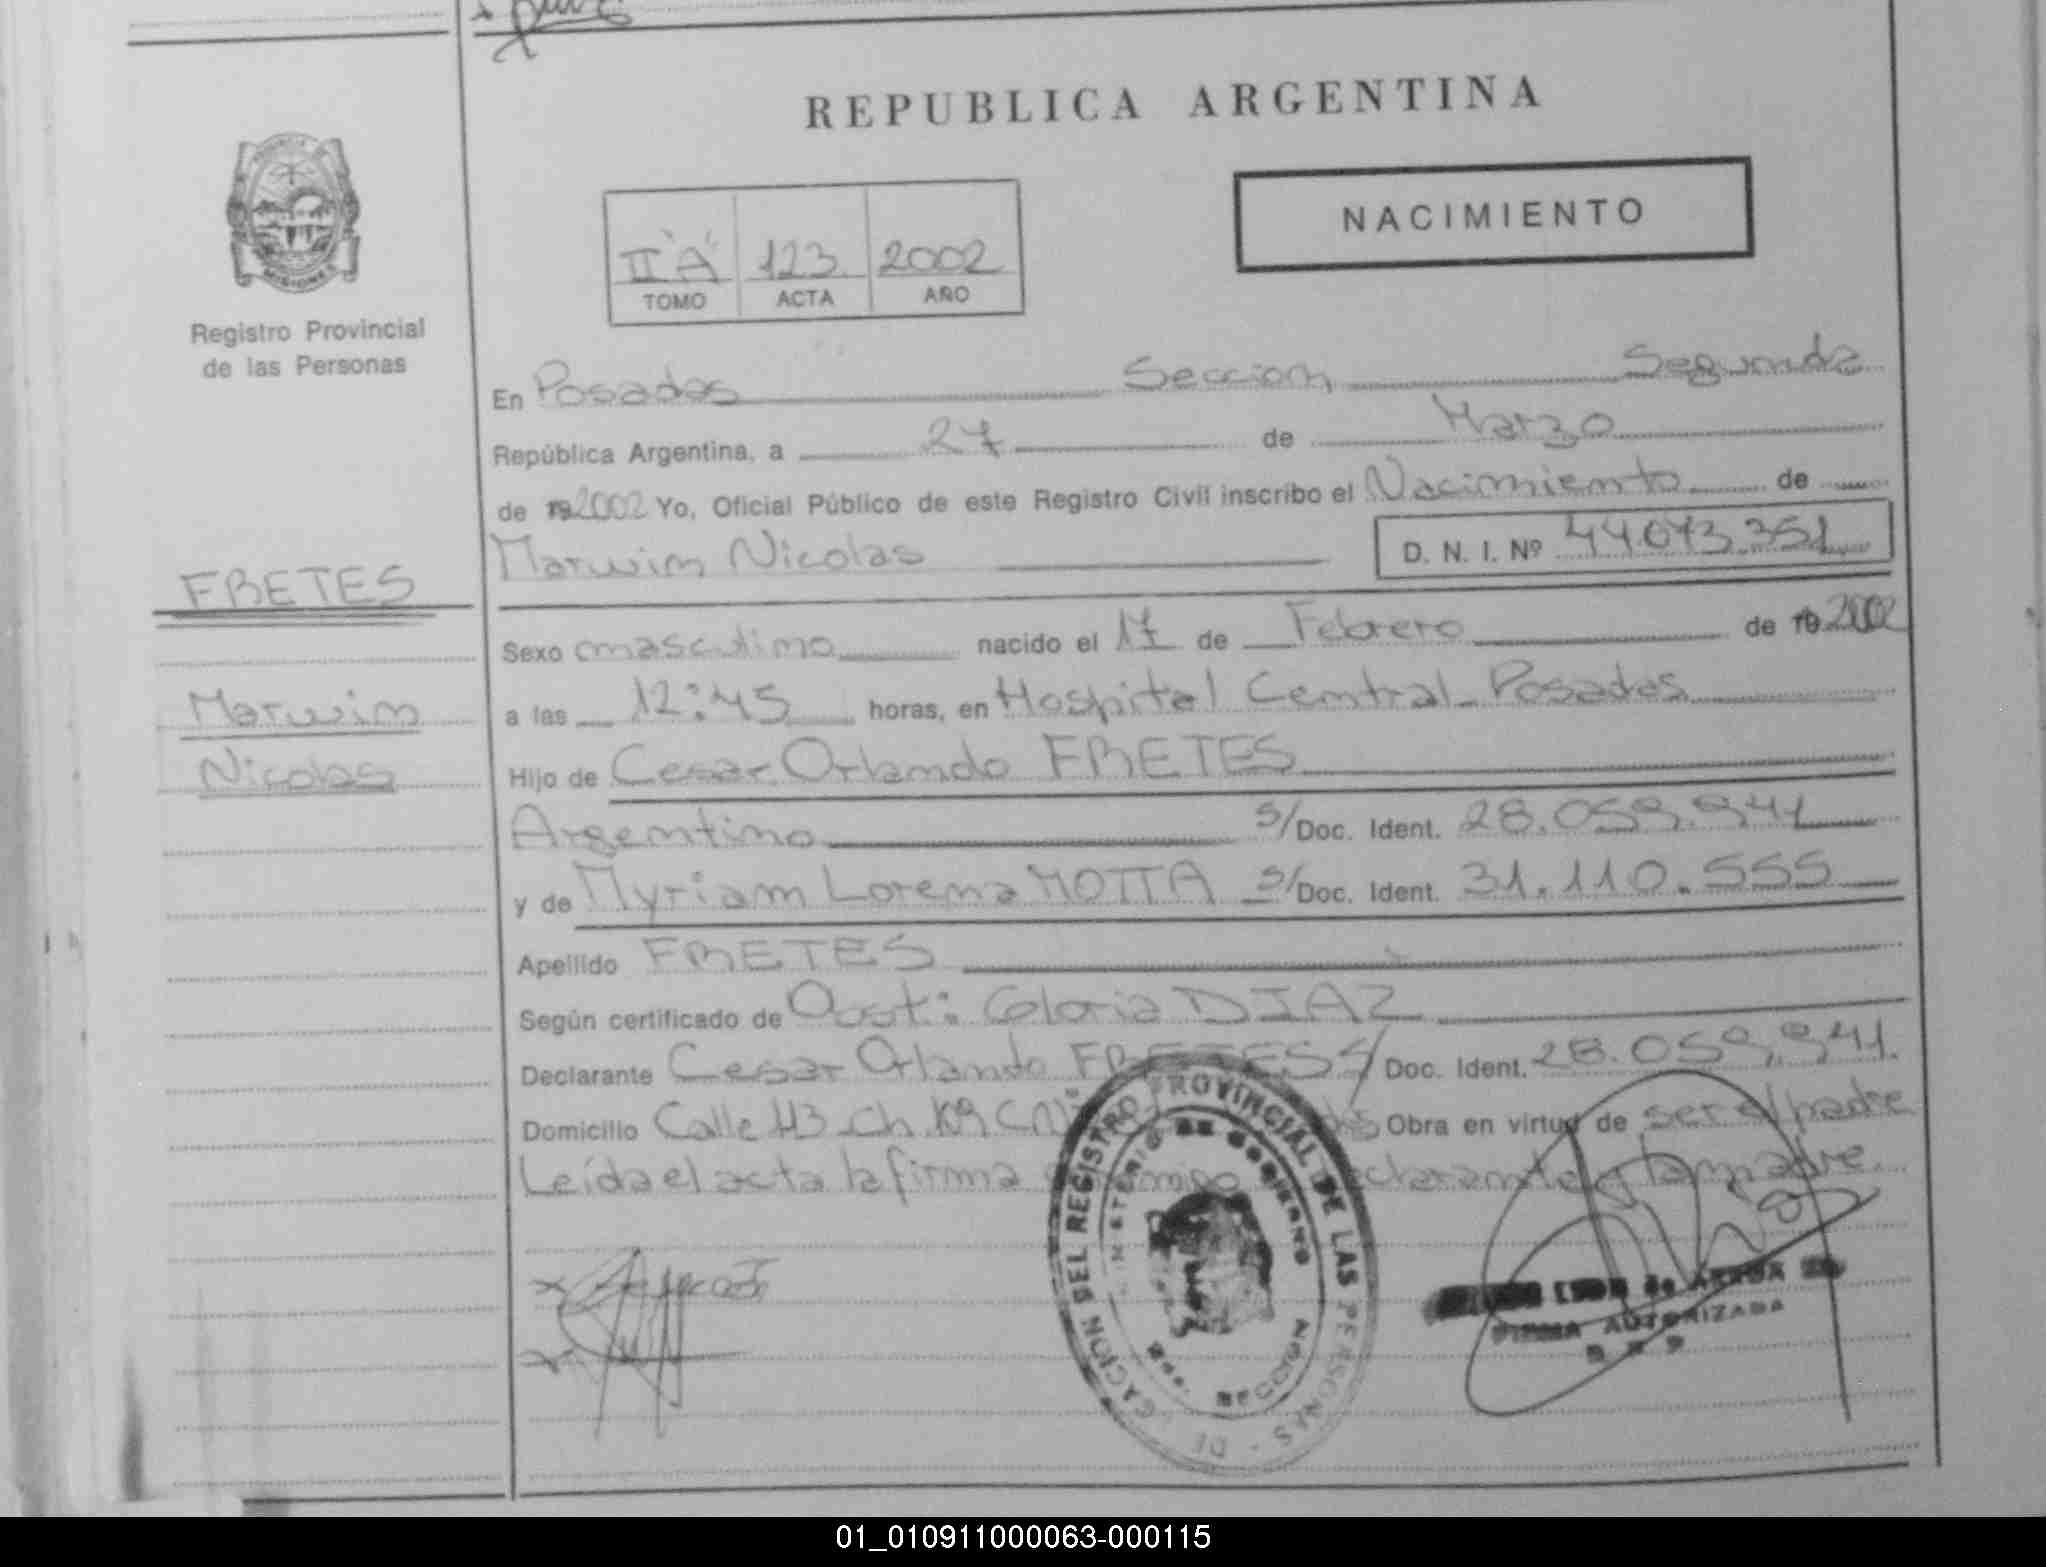 REPUBLICA ARGENTINA
NACIMIENTO
II "A" 123 2002
TOMO ACTA AÑO
MISIONES
Registro Provincial
de las Personas
En Posadas Seccion Segunda
República Argentina, a 27 de Marzo
de 19 2002 Yo, Oficial Público de este Registro Civil inscribo el Nacimiento de
Marwin Nicolas D. N. I. Nº 44.073.351
FRETES
Marwin
Nicolas
Sexo masculino nacido el 17 de Febrero de 19 2002
a las 12:45 horas, en Hospital Central Posadas
Hijo de Cesar Orlando FRETES
Argentino s/Doc. Ident. 28.059.941
y de Myriam Lorena MOTTA s/Doc. Ident. 31.110.555
Apellido FRETES
Según certificado de Obst: Gloria DIAZ
Declarante Cesar Orlando FRETES S/ Doc. Ident. 28.059.941.
Domicilio Calle 113 Ch. 109 C Obra en virtud de ser el padre
Leída el acta la firma y la madre.
DEL REGISTRO PROVINCIAL DE LAS PERSONAS - DE
MINISTERIO DE GOBIERNO
SECCION
de
FIRMA AUTORIZADA
01_010911000063-000115